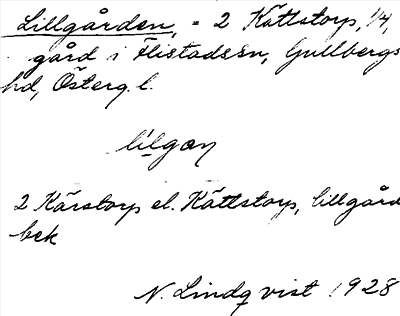 Lillgården, = 2 Kättstorp, 1/4,
gård i Flistads sn, Gullbergs
hd, Österg. l.
lilgan
2 Kärstorp el. Kättstorp, lillgård
bek
N. Lindqvist 1928